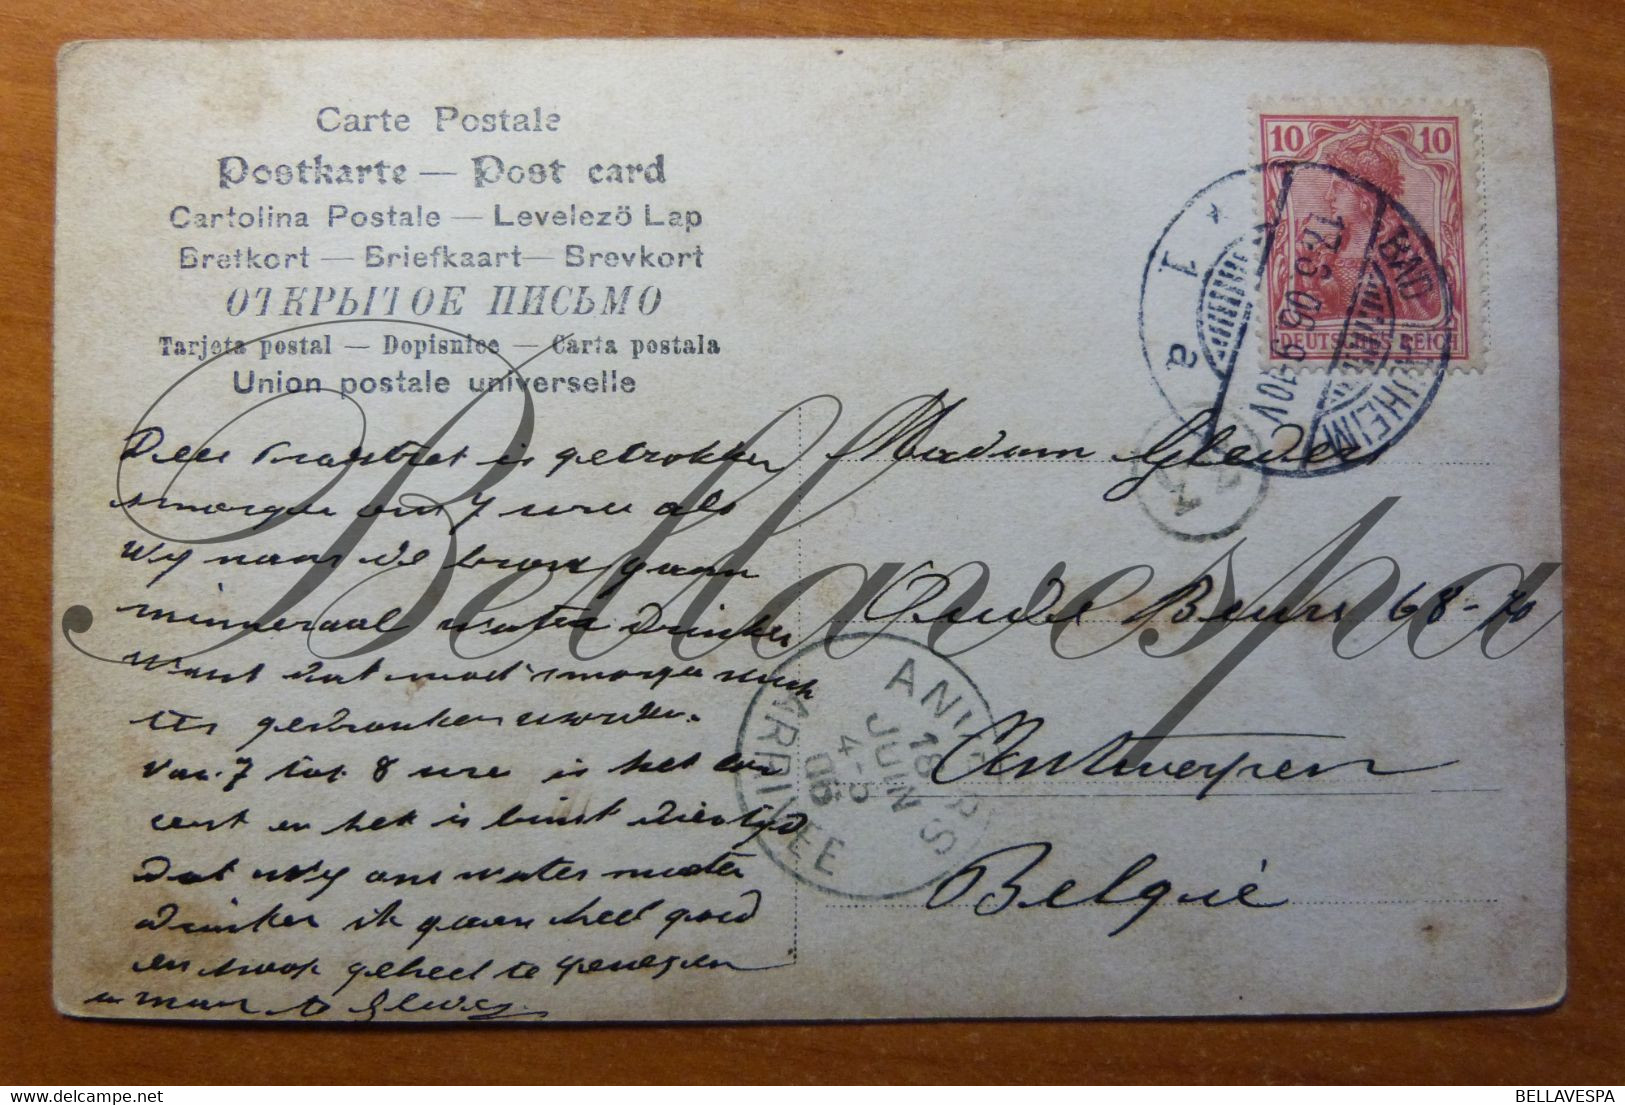 Carte Postale
Postkarte — Post card
Cartolina Postale — Levelező Lap
Brefkort — Briefkaart — Brevkort
ОТКРЫТОЕ ПИСЬМО
Tarjeta postal — Dopisnice — Carta postala
Union postale universelle
10 10
DEUTSCHES REICH
BAD
17.6.06 9-10V
1 a
Deze is getrokken
smorgen om 7 ure als
wij naar de bron gaan
minneraal water drinken
want dat moet smorgen nuch
ter gedronken worden.
van 7 tot 8 ure is het con
cert en het is binst die tijd
dat wij ons water moeten
drinken ik gaan heel goed
en hoop geheel te genezen
Madam Gleders
Oude Beurs 68-70
Antwerpen
België
ANVERS
18 JUIN
4-5
06
ARRIVEE
Bellavespa
BELLAVESPA